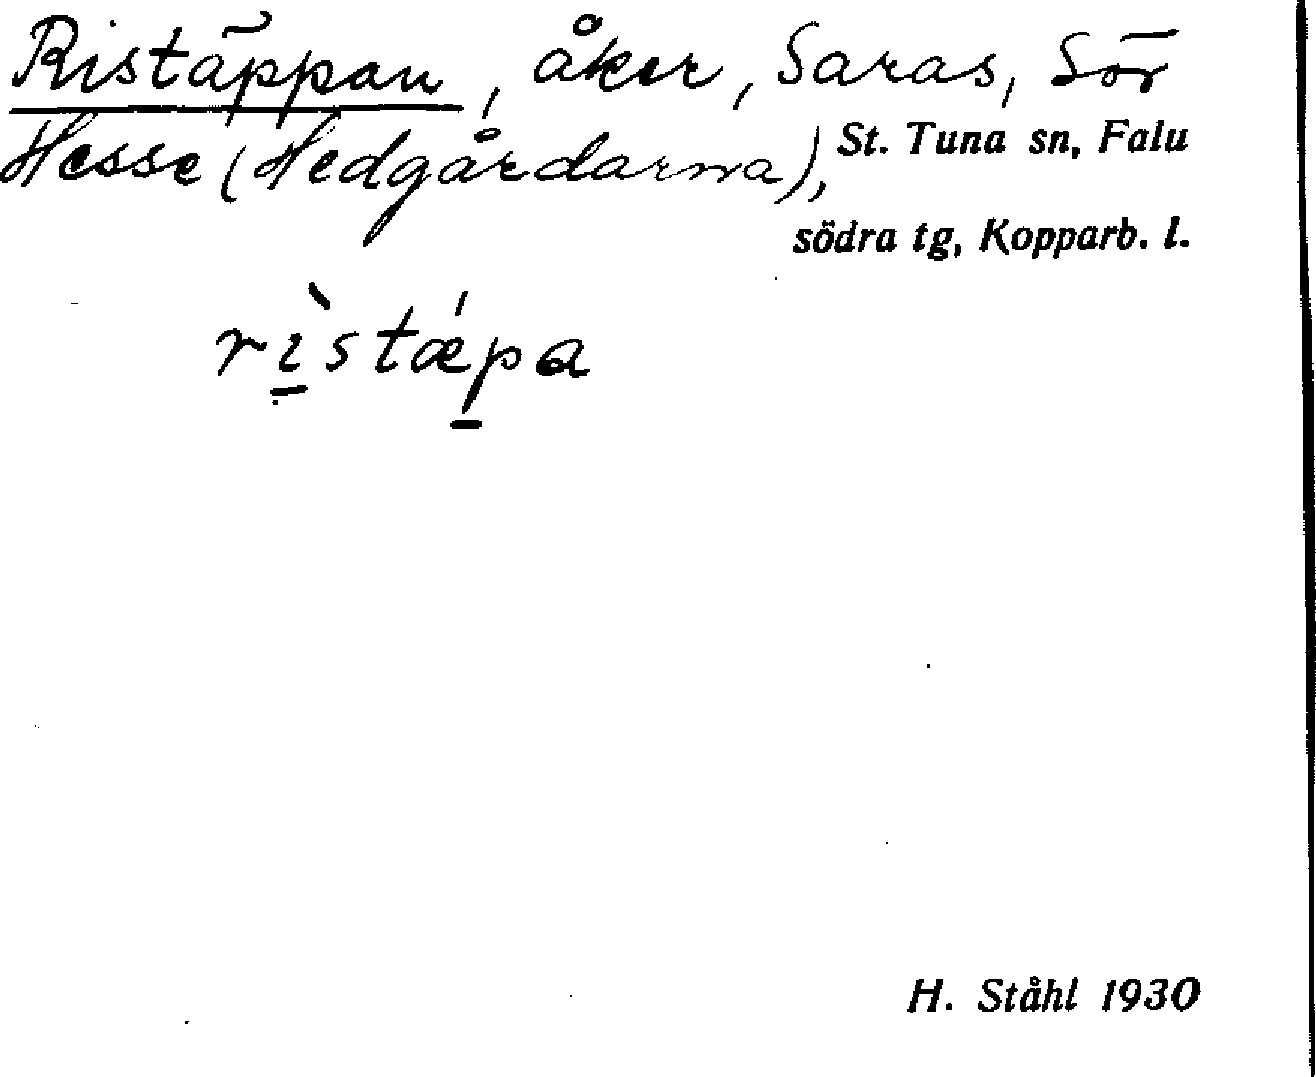 Ristäppan, åker, Saras, Sör
Hesse (Hedgårdarna), St. Tuna sn, Falu
södra tg, Kopparb. l.
rìstǽpa
H. Ståhl 1930